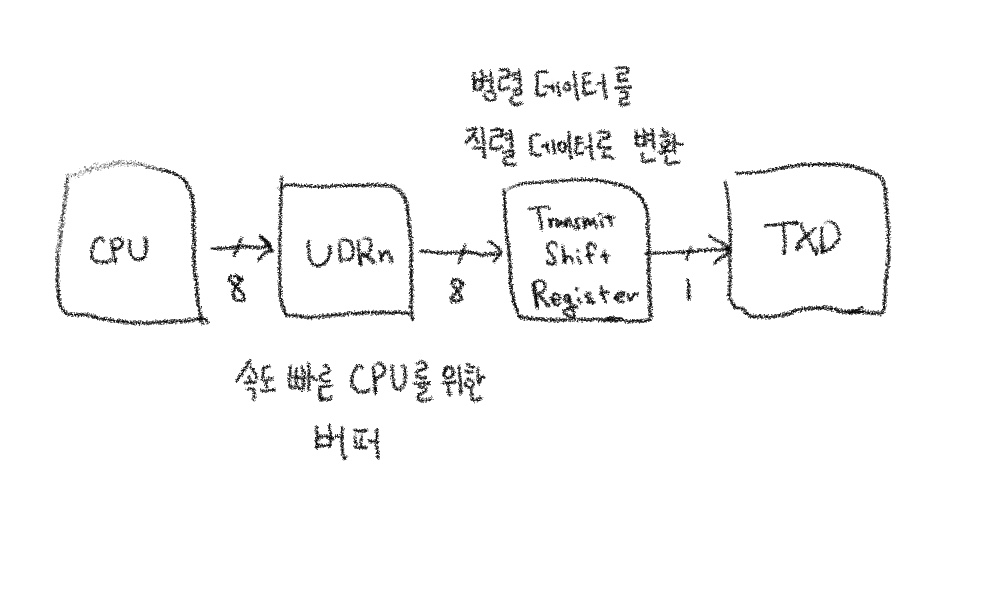 병렬 데이터를
직렬 데이터로 변환
CPU
8
UDRn
8
Transmit
Shift
Register
1
TXD
속도 빠른 CPU를 위한
버퍼